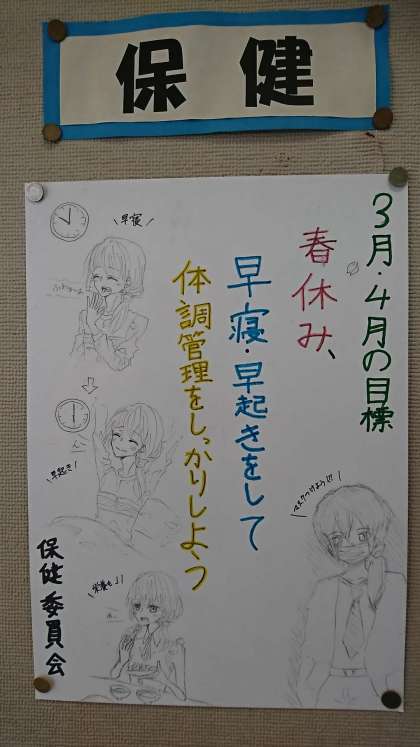 保健
3月・4月の目標
春休み、
早寝・早起きをして
体調管理をしっかりしよう
早寝
早起き!
栄養も!!
マスクつけよう!!
保健委員会